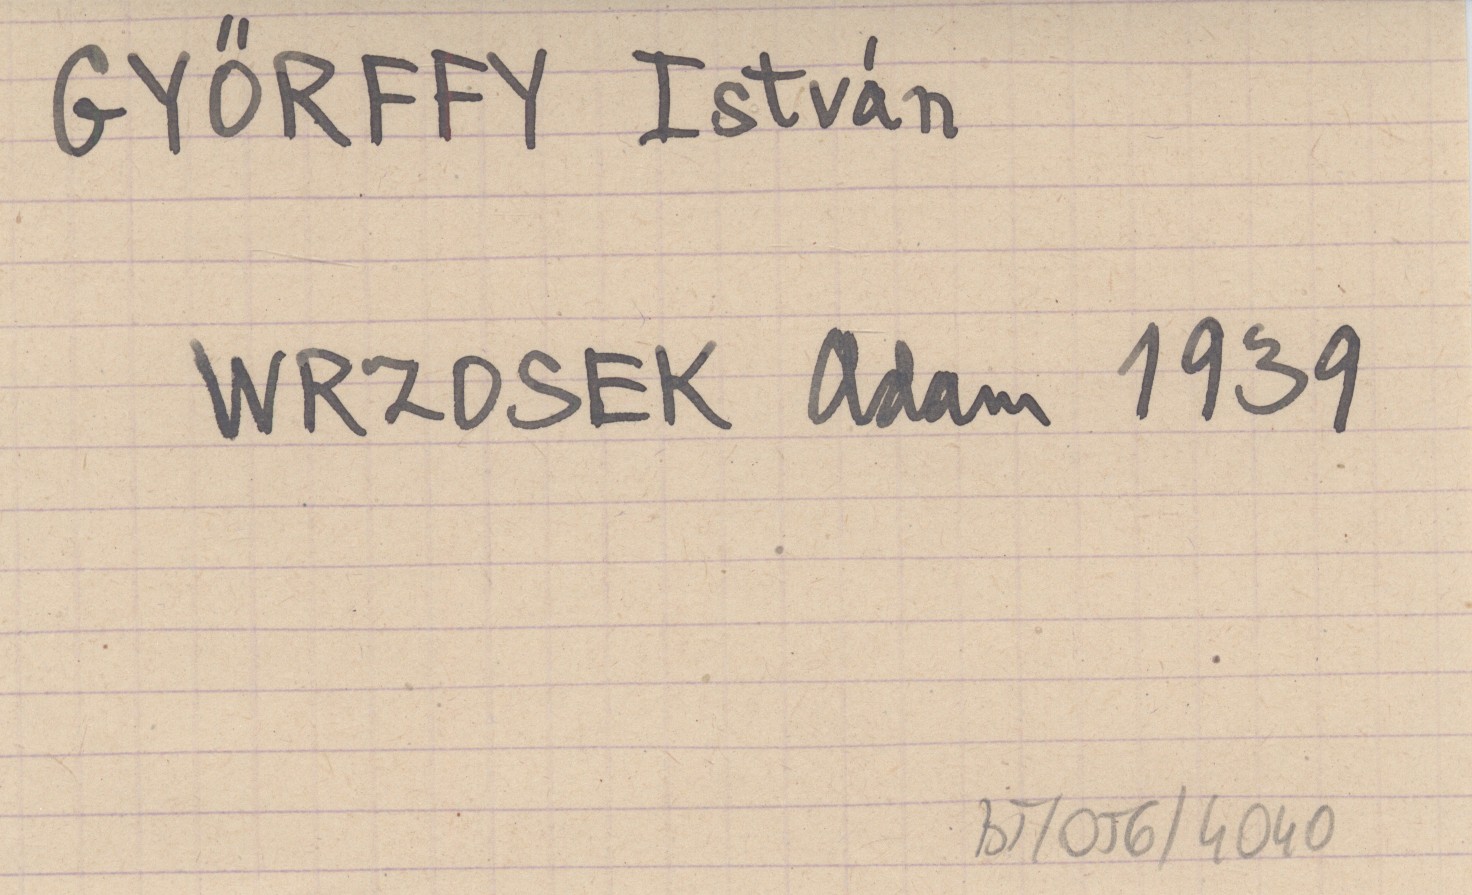 GYŐRFFY István
WRZOSEK Adam 1939
BT/OT6/4040